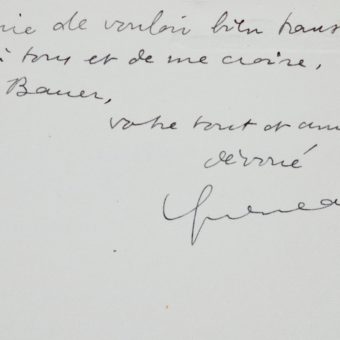 de vouloir bien trans
à tous et de me croire,
Bauer,
votre tout et am
dévoué